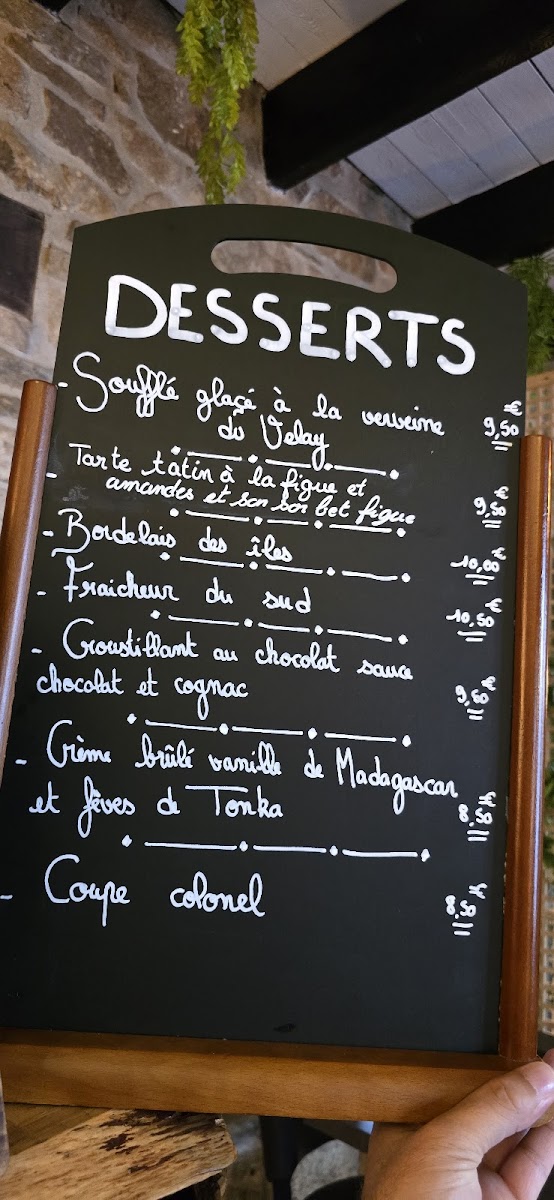 DESSERTS
- Soufflé glaçé à la verveine
du Velay 9,50 €
- Tarte tatin à la figue et
amandes et son sorbet figue 9,50 €
- Bordelais des îles 10,00 €
- Fraicheur du sud 10,50 €
- Croustillant au chocolat sauce
chocolat et cognac 9,50 €
- Crème brûlé vanille de Madagascar
et fèves de Tonka 8,50 €
- Coupe colonel 8,50 €